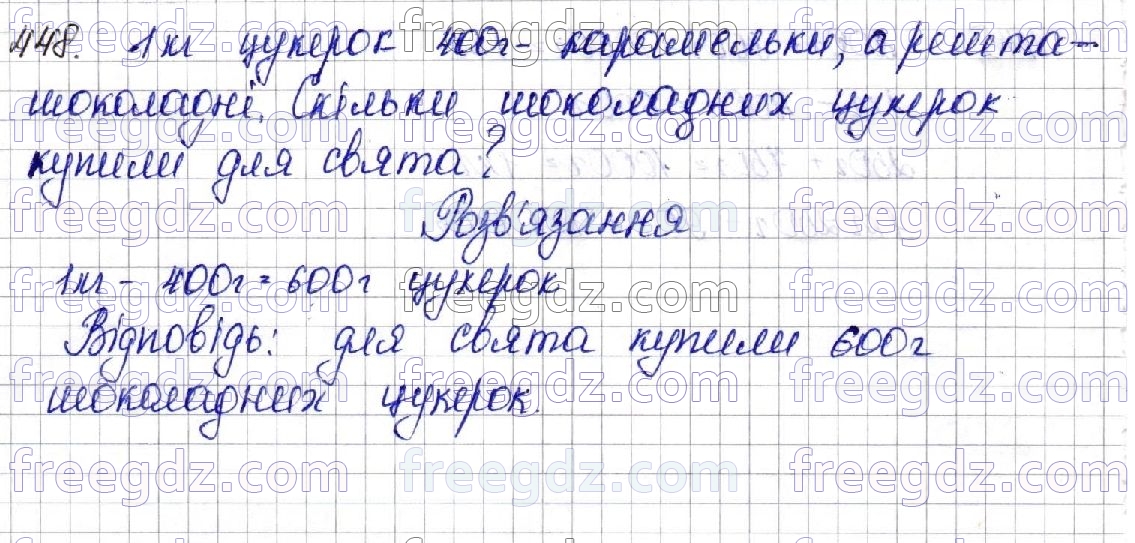 448. 1кг цукерок 400г - карамельки, а решта -
шоколадні. Скільки шоколадних цукерок
купили для свята?
Розв'язання
1кг - 400г = 600г цукерок
Відповідь: для свята купили 600г
шоколадних цукерок.
freegdz.com